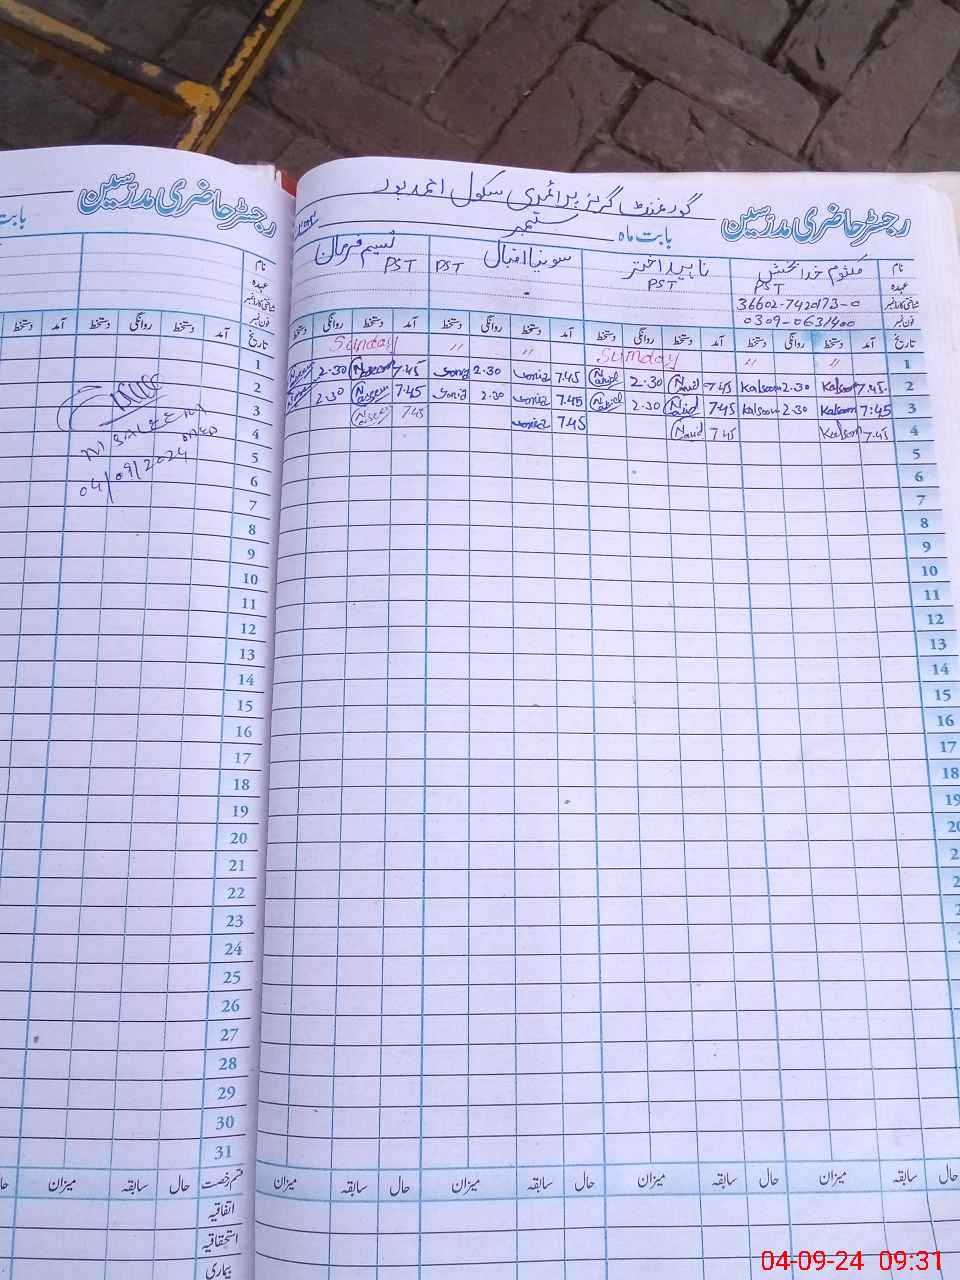 رجسٹر حاضری مدرسین
گورنمنٹ گرلز پرائمری سکول احمد پور
بابت ماہ ستمبر
نام کلثوم خدا بخش ناہید اختر سونیا اقبال نسیم
عہدہ PST PST PST PST
شناختی کارڈ نمبر 36602-7420173-0
فون نمبر 0309-0631400
تاریخ آمد دستخط روانگی دستخط آمد دستخط روانگی دستخط آمد دستخط روانگی دستخط آمد دستخط روانگی دستخط
1 〃 〃 Sunday 〃 〃 Sunday
2 7.45 Kalsoom 2.30 Kalsoom 7.45 Navid 2.30 Navid 7.45 Sonia 2.30 Sonia 7.45 Naseem 2.30 Naseem
3 7:45 Kalsoom 2.30 Kalsoom 7.45 Navid 2.30 Navid 7.45 Sonia 2.30 Sonia 7.45 Naseem 2.30
4 7.45 Kalsoom 7.45 Navid 7.45 Sonia 7.45 Naseem
5
6
7
8
9
10
11
12
13
14
15
16
17
18
19
20
2
2
2
حال سابقہ میزان حال سابقہ میزان حال سابقہ میزان حال سابقہ میزان
رجسٹر حاضری مدرسین
بابت
نام
عہدہ
شناختی کارڈ نمبر
فون نمبر
تاریخ آمد دستخط روانگی دستخط آمد دستخط
1
2
3
4
5
6
7
8
9
10
11
12
13
14
15
16
17
18
19
20
21
22
23
24
25
26
27
28
29
30
31
M SALEEM
04/09/2024
قسم رخصت حال سابقہ میزان
اتفاقیہ
استحقاقیہ
بیماری
04-09-24 09:31